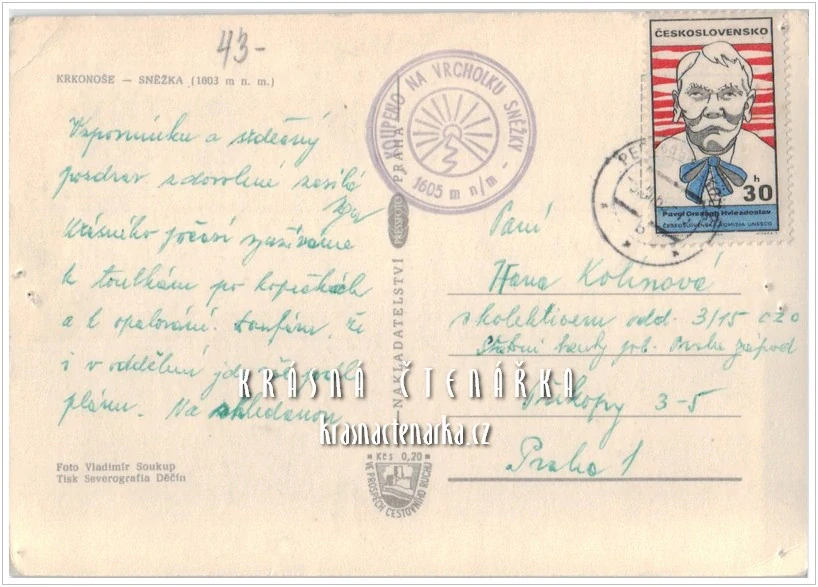 43-
KRKONOŠE — SNĚŽKA (1603 m n. m.)
Vzpomínku a srdečný
pozdrav z dovolené zasílá
krásného počasí využíváme
k toulkám po kopečkách
a k opalování. Doufám, že
i v oddělení jde vše podle
plánu. Na shledanou
Foto Vladimír Soukup
Tisk Severografia Děčín
KOUPENO NA VRCHOLKU SNĚŽKY
1605 m n/m
NAKLADATELSTVÍ PRESSFOTO PRAHA
Kčs 0,20
VE PROSPĚCH CESTOVNÍHO RUCHU
ČESKOSLOVENSKO
h
30
Pavol Országh Hviezdoslav
ČESKOSLOVENSKÁ KOMISIA UNESCO
PEC
Paní
Hana Kolínová
s kolektivem odd. 3/15 OZO
Státní banky pob. Praha západ
Příkopy 3-5
Praha 1
KRÁSNÁ ČTENÁŘKA
krasnactenarka.cz